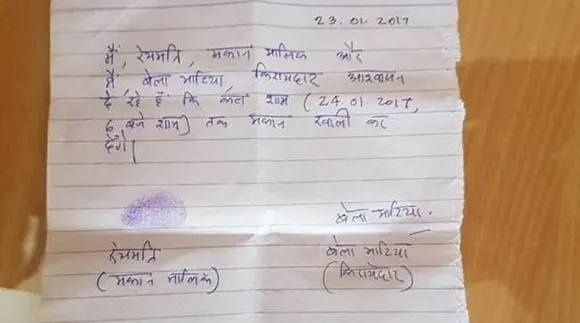 23.01.2017
मैं, रेयमति, मकान मालिक और
मैं बेला भाटिया, किरायदार आश्वासन
दे रहे हैं कि कल शाम (24.01.2017,
6 बजे शाम) तक मकान खाली कर
देंगे।
बेला भाटिया.
रेयमति
बेला भाटिया
(मकान मालिक)
(किरायेदार)